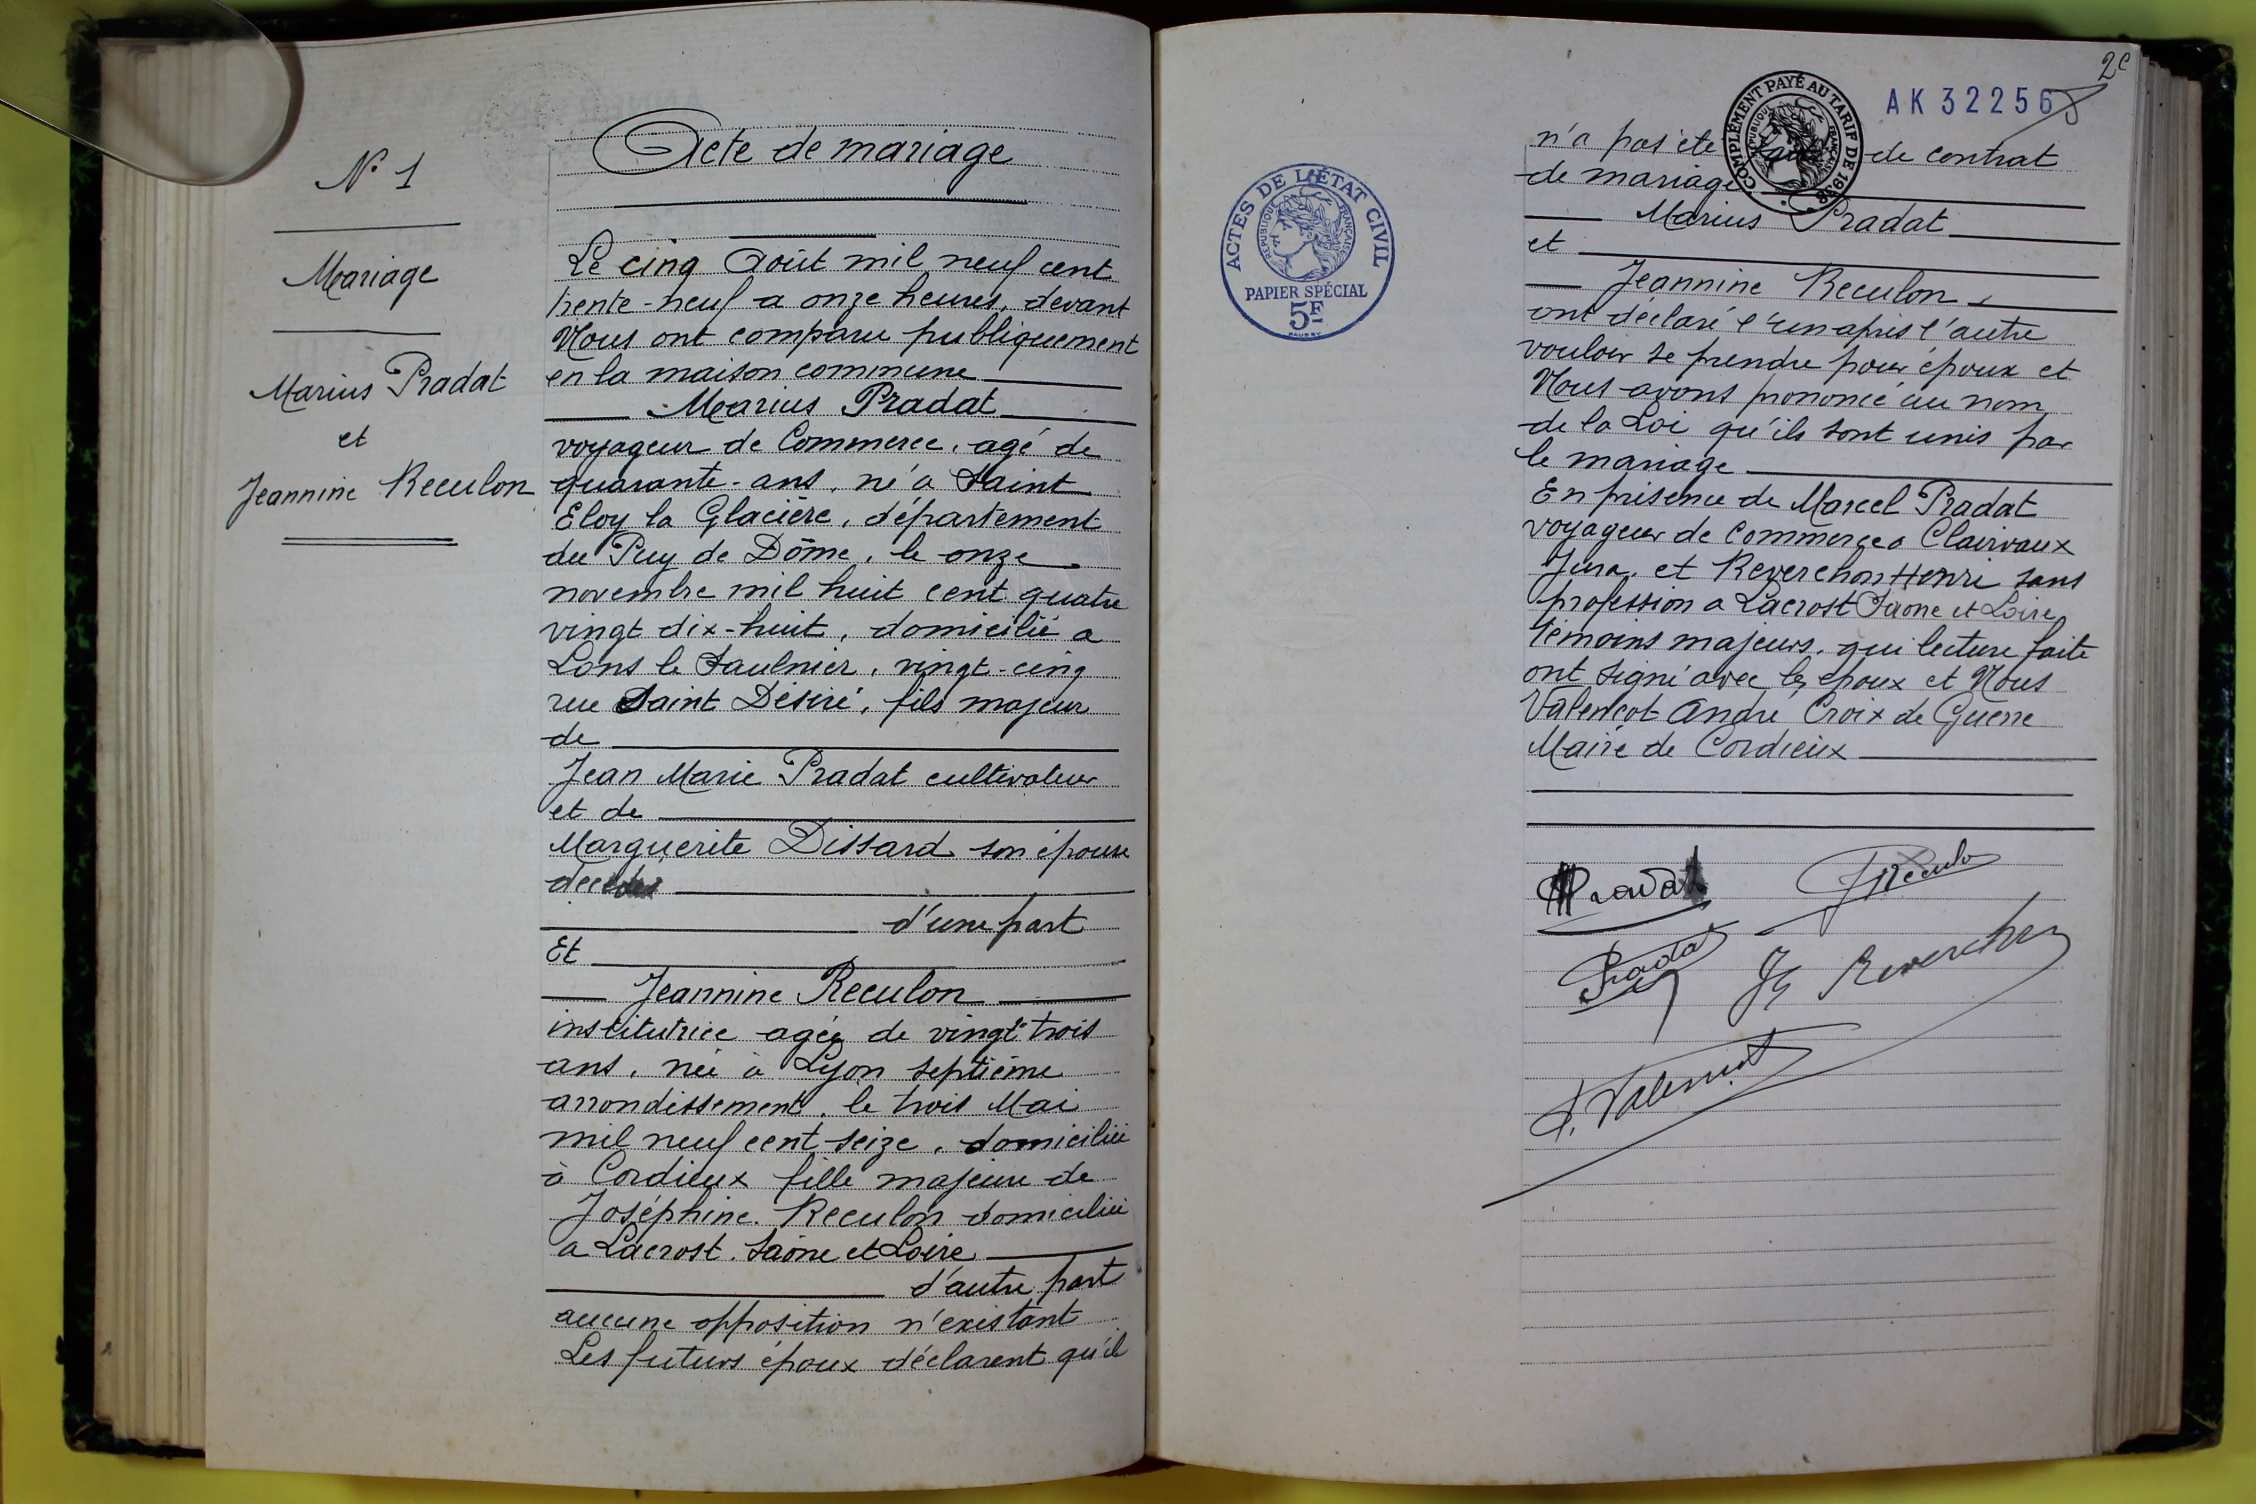 N° 1
Mariage
Marius Pradat
et
Jeannine Reculon
Acte de mariage
Le cinq Août mil neuf cent
trente-neuf a onze heures, devant
Nous ont comparu publiquement
en la maison commune
Marius Pradat
voyageur de Commerce, agé de
quarante-ans, né a Saint
Eloy la Glacière, département
du Puy de Dôme, le onze
novembre mil huit cent quatre
vingt dix-huit, domicilié a
Lons le Saulnier, vingt-cinq
rue Saint Désiré, fils majeur
de
Jean Marie Pradat cultivateur
et de
Marguerite Dissard son épouse
décédés
d'une part
Et
Jeannine Reculon
institutrice agée de vingt-trois
ans, née à Lyon septième
arrondissement, le trois Mai
mil neuf cent seize, domiciliée
à Cordieux fille majeure de
Joséphine Reculon domiciliée
a Lacrost. Saône et Loire
d'autre part
aucune opposition n'existant
Les futurs époux déclarent qu'il
2e
AK 32256
COMPLÉMENT PAYÉ AU TARIF DE 1938
RÉPUBLIQUE FRANÇAISE
ACTES DE L'ÉTAT CIVIL
RÉPUBLIQUE FRANÇAISE
PAPIER SPÉCIAL
5F
n'a pas été de contrat
de mariage
Marius Pradat
et
Jeannine Reculon
ont déclaré l'un après l'autre
vouloir se prendre pour époux et
Nous avons prononcé au nom
de la Loi qu'ils sont unis par
le mariage
En présence de Marcel Pradat
voyageur de commerce a Clairvaux
Jura, et Reverchon Henri sans
profession a Lacrost Saone et Loire
témoins majeurs, qui lecture faite
ont signé avec les époux et Nous
Valencot André Croix de Guerre
Maire de Cordieux
MPradat
JReculo
Pradat
Reverchon
A. Valencot